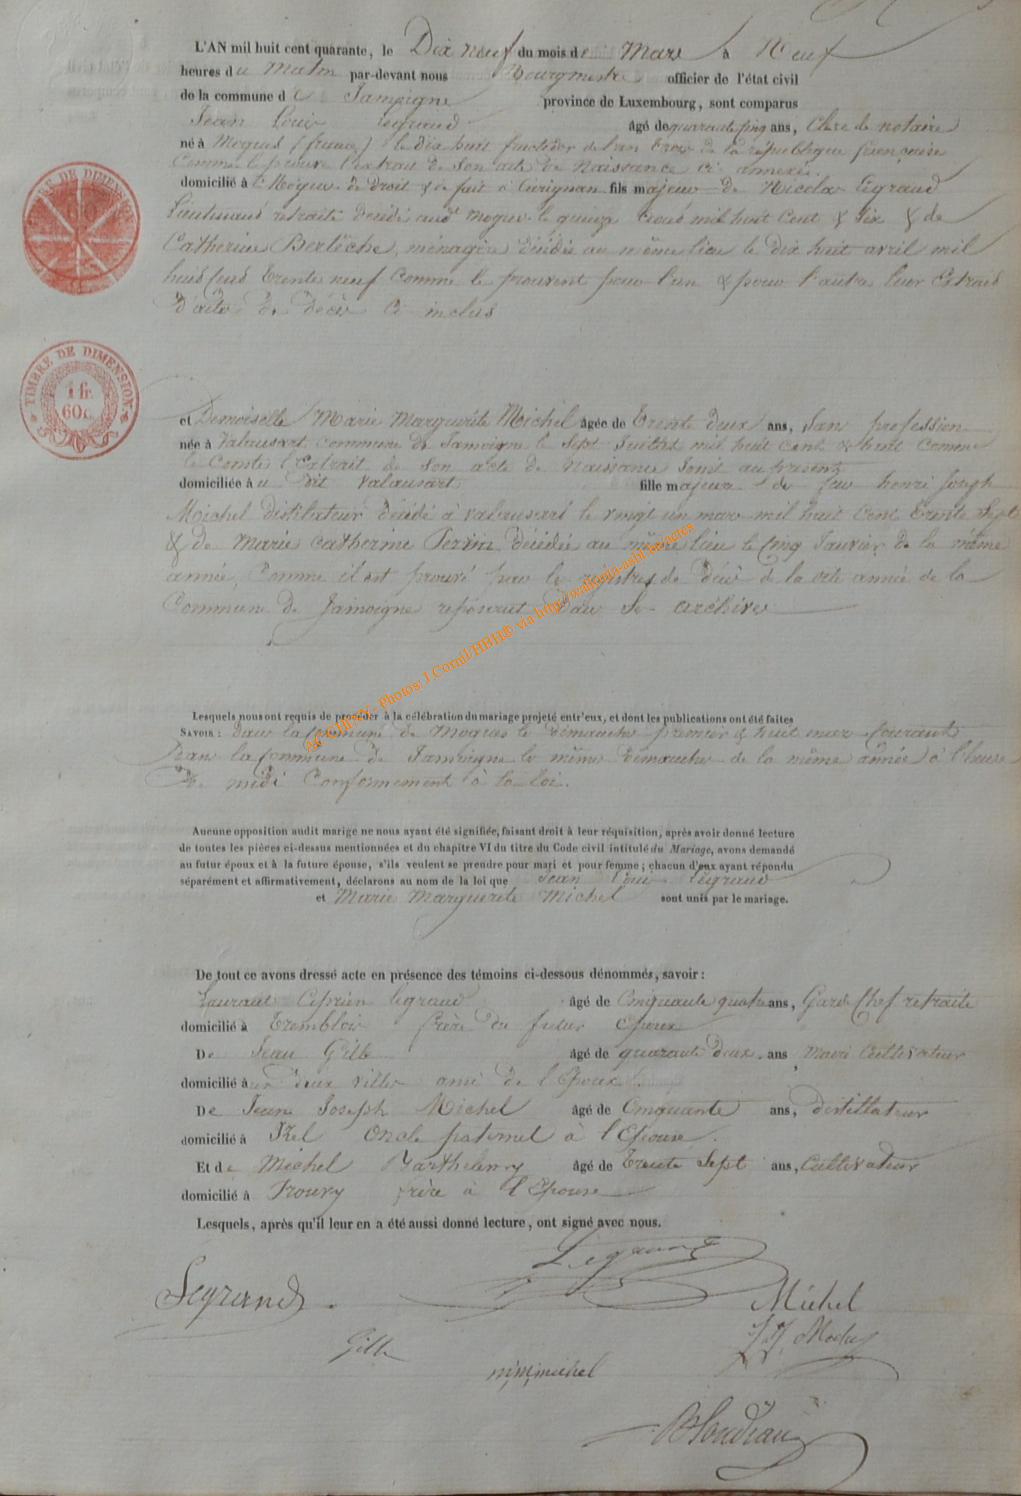 L'AN mil huit cent quarante, le Dix neuf du mois de Mars à Neuf
heures du Matin par-devant nous Bourgmestre officier de l'état civil
de la commune de Jamoigne province de Luxembourg, sont comparus
Jean Louis Legrand âgé de quarante cinq ans, Clerc de notaire
né à Mogues (france) le dix huit fructidor de l'an trois de la république française
Comme le prouve l'extrait de son acte de Naissance ci annexé.
domicilié à Mogues de droit & de fait à Carignan fils majeur de Nicolas Legrand
Lieutenant retraité décédé audt mogues le quinze août mil huit Cent & Six & de
Catherine Berlèche, ménagère décédée au même lieu le dix huit avril mil
huit Cent trente neuf Comme le prouvent pour l'un & pour l'autre leur Extraits
d'actes de décès Ci inclus
TIMBRE DE DIMENSION
1 fr.
60c.
et Demoiselle Marie Marguerite Michel âgée de Trente deux ans, San profession
née à Valansart commune de Jamoigne le Sept Juillet mil huit Cent & huit comme
le Conste l'Extrait de son acte de Naissance Joint au présent
domiciliée au dit Valansart fille majeure de feu henri Joseph
Michel distilateur décédé à valansart le vingt un mars mil huit Cent Trente Sept
& de Marie Catherine Perrin décédée au même lieu le Cinq Janvier de la même
année, Comme il est prouvé par le registres de décès de la dite année de la
Commune de Jamoigne reposent dans Se archives
Lesquels nous ont requis de procéder à la célébration du mariage projeté entr'eux, et dont les publications ont été faites
SAVOIR : dans la Commune de Mogues le dimanche premier & huit mars Courant
Dans la Commune de Jamoigne le même dimanche de la même année à l'heure
De midi Conformement à la loi.
Aucune opposition audit marige ne nous ayant été signifiée, faisant droit à leur réquisition, après avoir donné lecture
de toutes les pièces ci-dessus mentionnées et du chapitre VI du titre du Code civil intitulé du Mariage, avons demandé
au futur époux et à la future épouse, s'ils veulent se prendre pour mari et pour femme ; chacun d'eux ayant répondu
séparément et affirmativement, déclarons au nom de la loi que Jean Louis Legrand
et Marie Marguerite Michel sont unis par le mariage.
De tout ce avons dressé acte en présence des témoins ci-dessous dénommés, savoir :
Laurant Ciprien Legrand âgé de Cinquante quatre ans, Garde Chef retraité
domicilié à Tremblois frère du futur Epoux
De Jean Gille âgé de quarante deux ans, Cultivateur
domicilié aux deux villes ami de l'Epoux.
De Jean Joseph Michel âgé de Cinquante ans, distillateur
domicilié à Izel Oncle paternel à l'Epouse.
Et de Michel Barthelemy âgé de Trente Sept ans, Cultivateur
domicilié à frère à l'Epouse
Lesquels, après qu'il leur en a été aussi donné lecture, ont signé avec nous.
Legrand
Legrand
Michel
Gille
m,m,michel
AC CHINY - Photos J.Cornil/HBH© via http://wallonia-asbl.be/actes